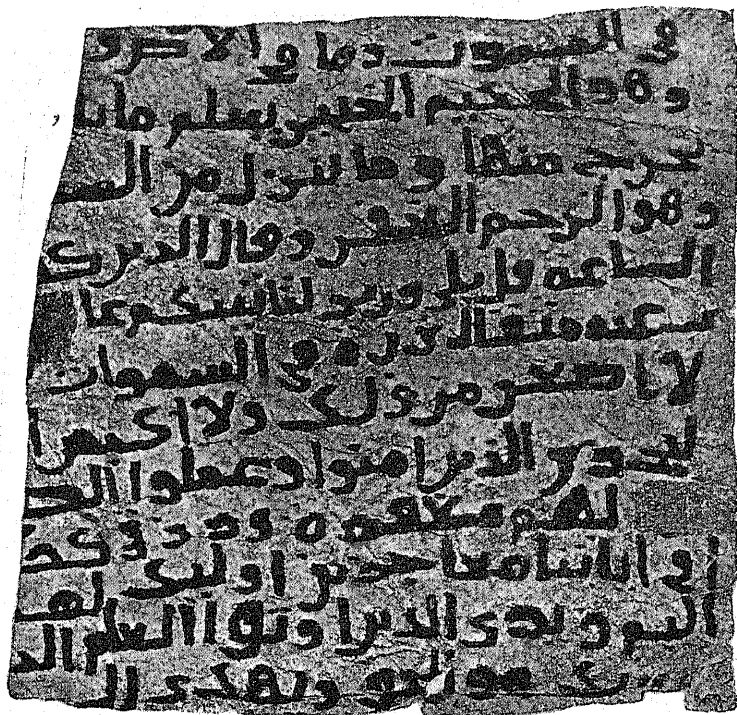 في السموت وما في الارض و
وهو الحكيم الخبير يعلم ما يلـ
يخرج منها وما ينزل من السـ
وهو الرحيم الغفر وقال الذين كـ
الساعه قل بلى وربي لتاتينكم عا
عنه مثقال ذره في السموات
لا اصغر من ذلك ولا اكبر ا
ليجزي الذين امنوا وعملوا الصـ
لهم مغفره ورزق كر
في اياتنا معاجزين اوليك لهـ
اليم ويرى الذين اوتوا العلم الذ
ـك هو الحق ويهدي الى